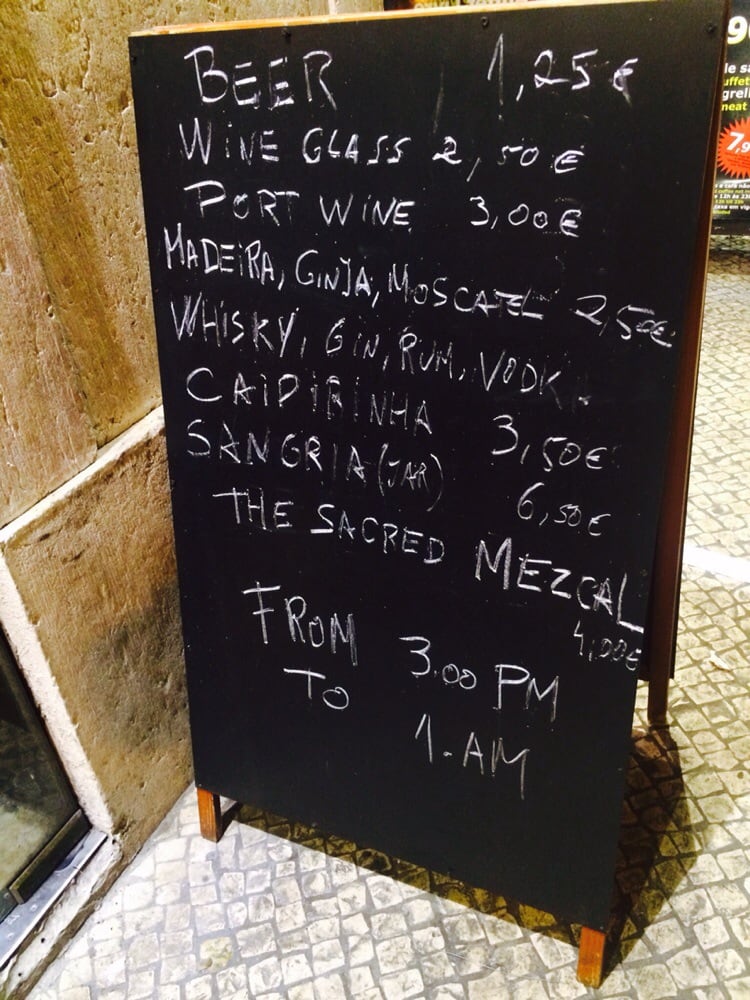 BEER 1,25 €
WINE GLASS 2,50 €
PORT WINE 3,00 €
MADEIRA, GINJA, MOSCATEL 2,50€
WHISKY, GIN, RUM, VODKA
CAIPIRINHA 3,50€
SANGRIA (JAR) 6,50€
THE SACRED MEZCAL
4,00€
FROM 3.00 PM
TO 1.AM
7,9